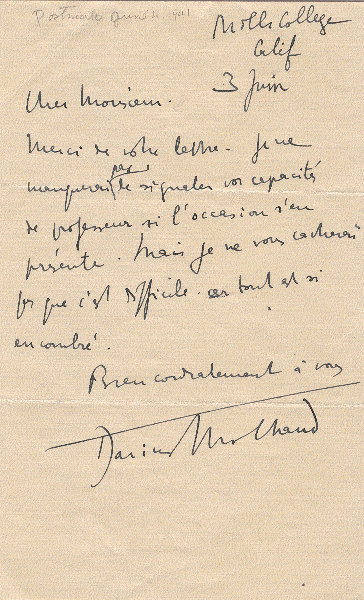 Postmark June 4, 1941
Mills College
Calif
3 Juin
Cher Monsieur.
Merci de votre lettre. Je ne
manquerai pas de signaler vos capacités
de professeur si l'occasion s'en
présente. Mais je ne vous cacherai
pas que c'est difficile. car tout est si
encombré.
Bien cordialement à vous
Darius Milhaud